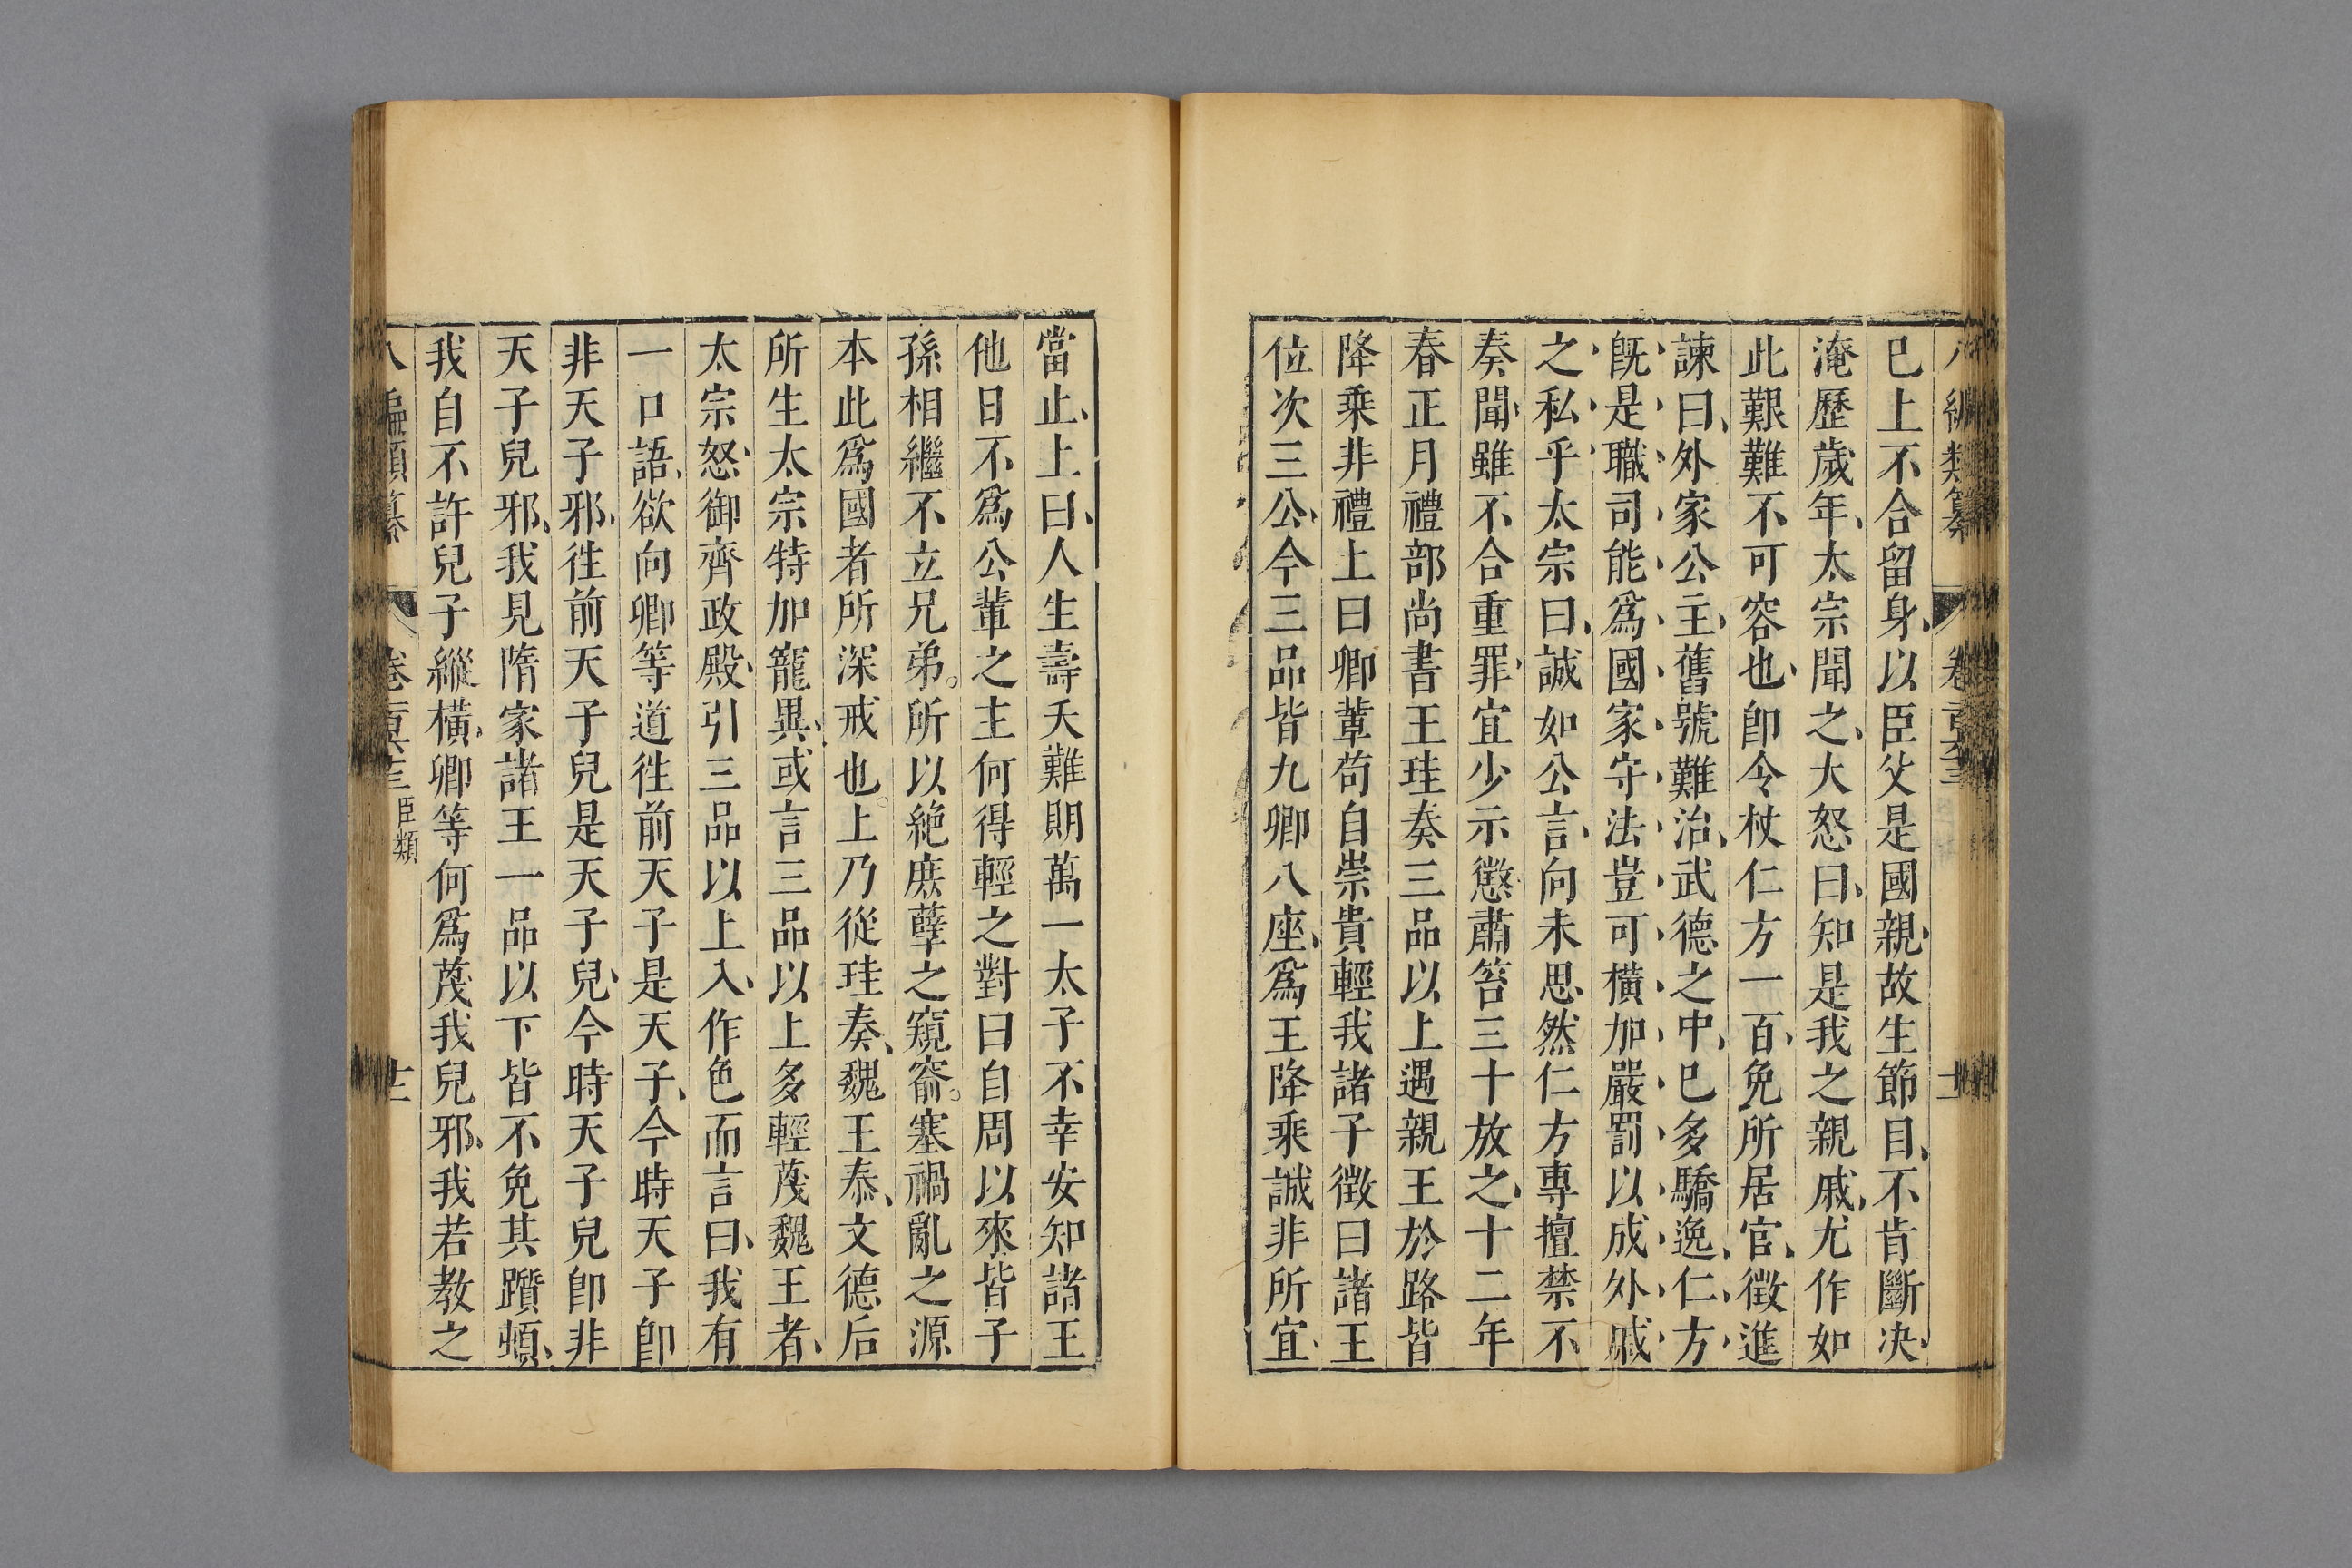 八編類纂 卷
已上不合留身以臣父是國親故生節目不肯斷決
淹歷歲年太宗聞之大怒曰知是我之親戚尤作如
此艱難不可容也卽令杖仁方一百免所居官徵進
諫曰外家公主舊號難治武德之中已多驕逸仁方
旣是職司能爲國家守法豈可橫加嚴罰以成外戚
之私乎太宗曰誠如公言向未思然仁方專擅禁不
奏聞雖不合重罪宜少示懲肅笞三十放之十二年
春正月禮部尚書王珪奏三品以上遇親王於路皆
降乘非禮上曰卿輩苟自崇貴輕我諸子徵曰諸王
位次三公今三品皆九卿八座爲王降乘誠非所宜
當止上曰人生壽夭難期萬一太子不幸安知諸王
他日不爲公輩之主何得輕之對曰自周以來皆子
孫相繼不立兄弟所以絕庶孽之窺窬塞禍亂之源
本此爲國者所深戒也上乃從珪奏魏王泰文德后
所生太宗特加寵異或言三品以上多輕蔑魏王者
太宗怒御齊政殿引三品以上入作色而言曰我有
一口語欲向卿等道徃前天子是天子今時天子卽
非天子邪徃前天子兒是天子兒今時天子兒卽非
天子兒邪我見隋家諸王一品以下皆不免其躓頓
我自不許兒子縱橫卿等何爲蔑我兒邪我若教之
八編類纂 卷 臣類